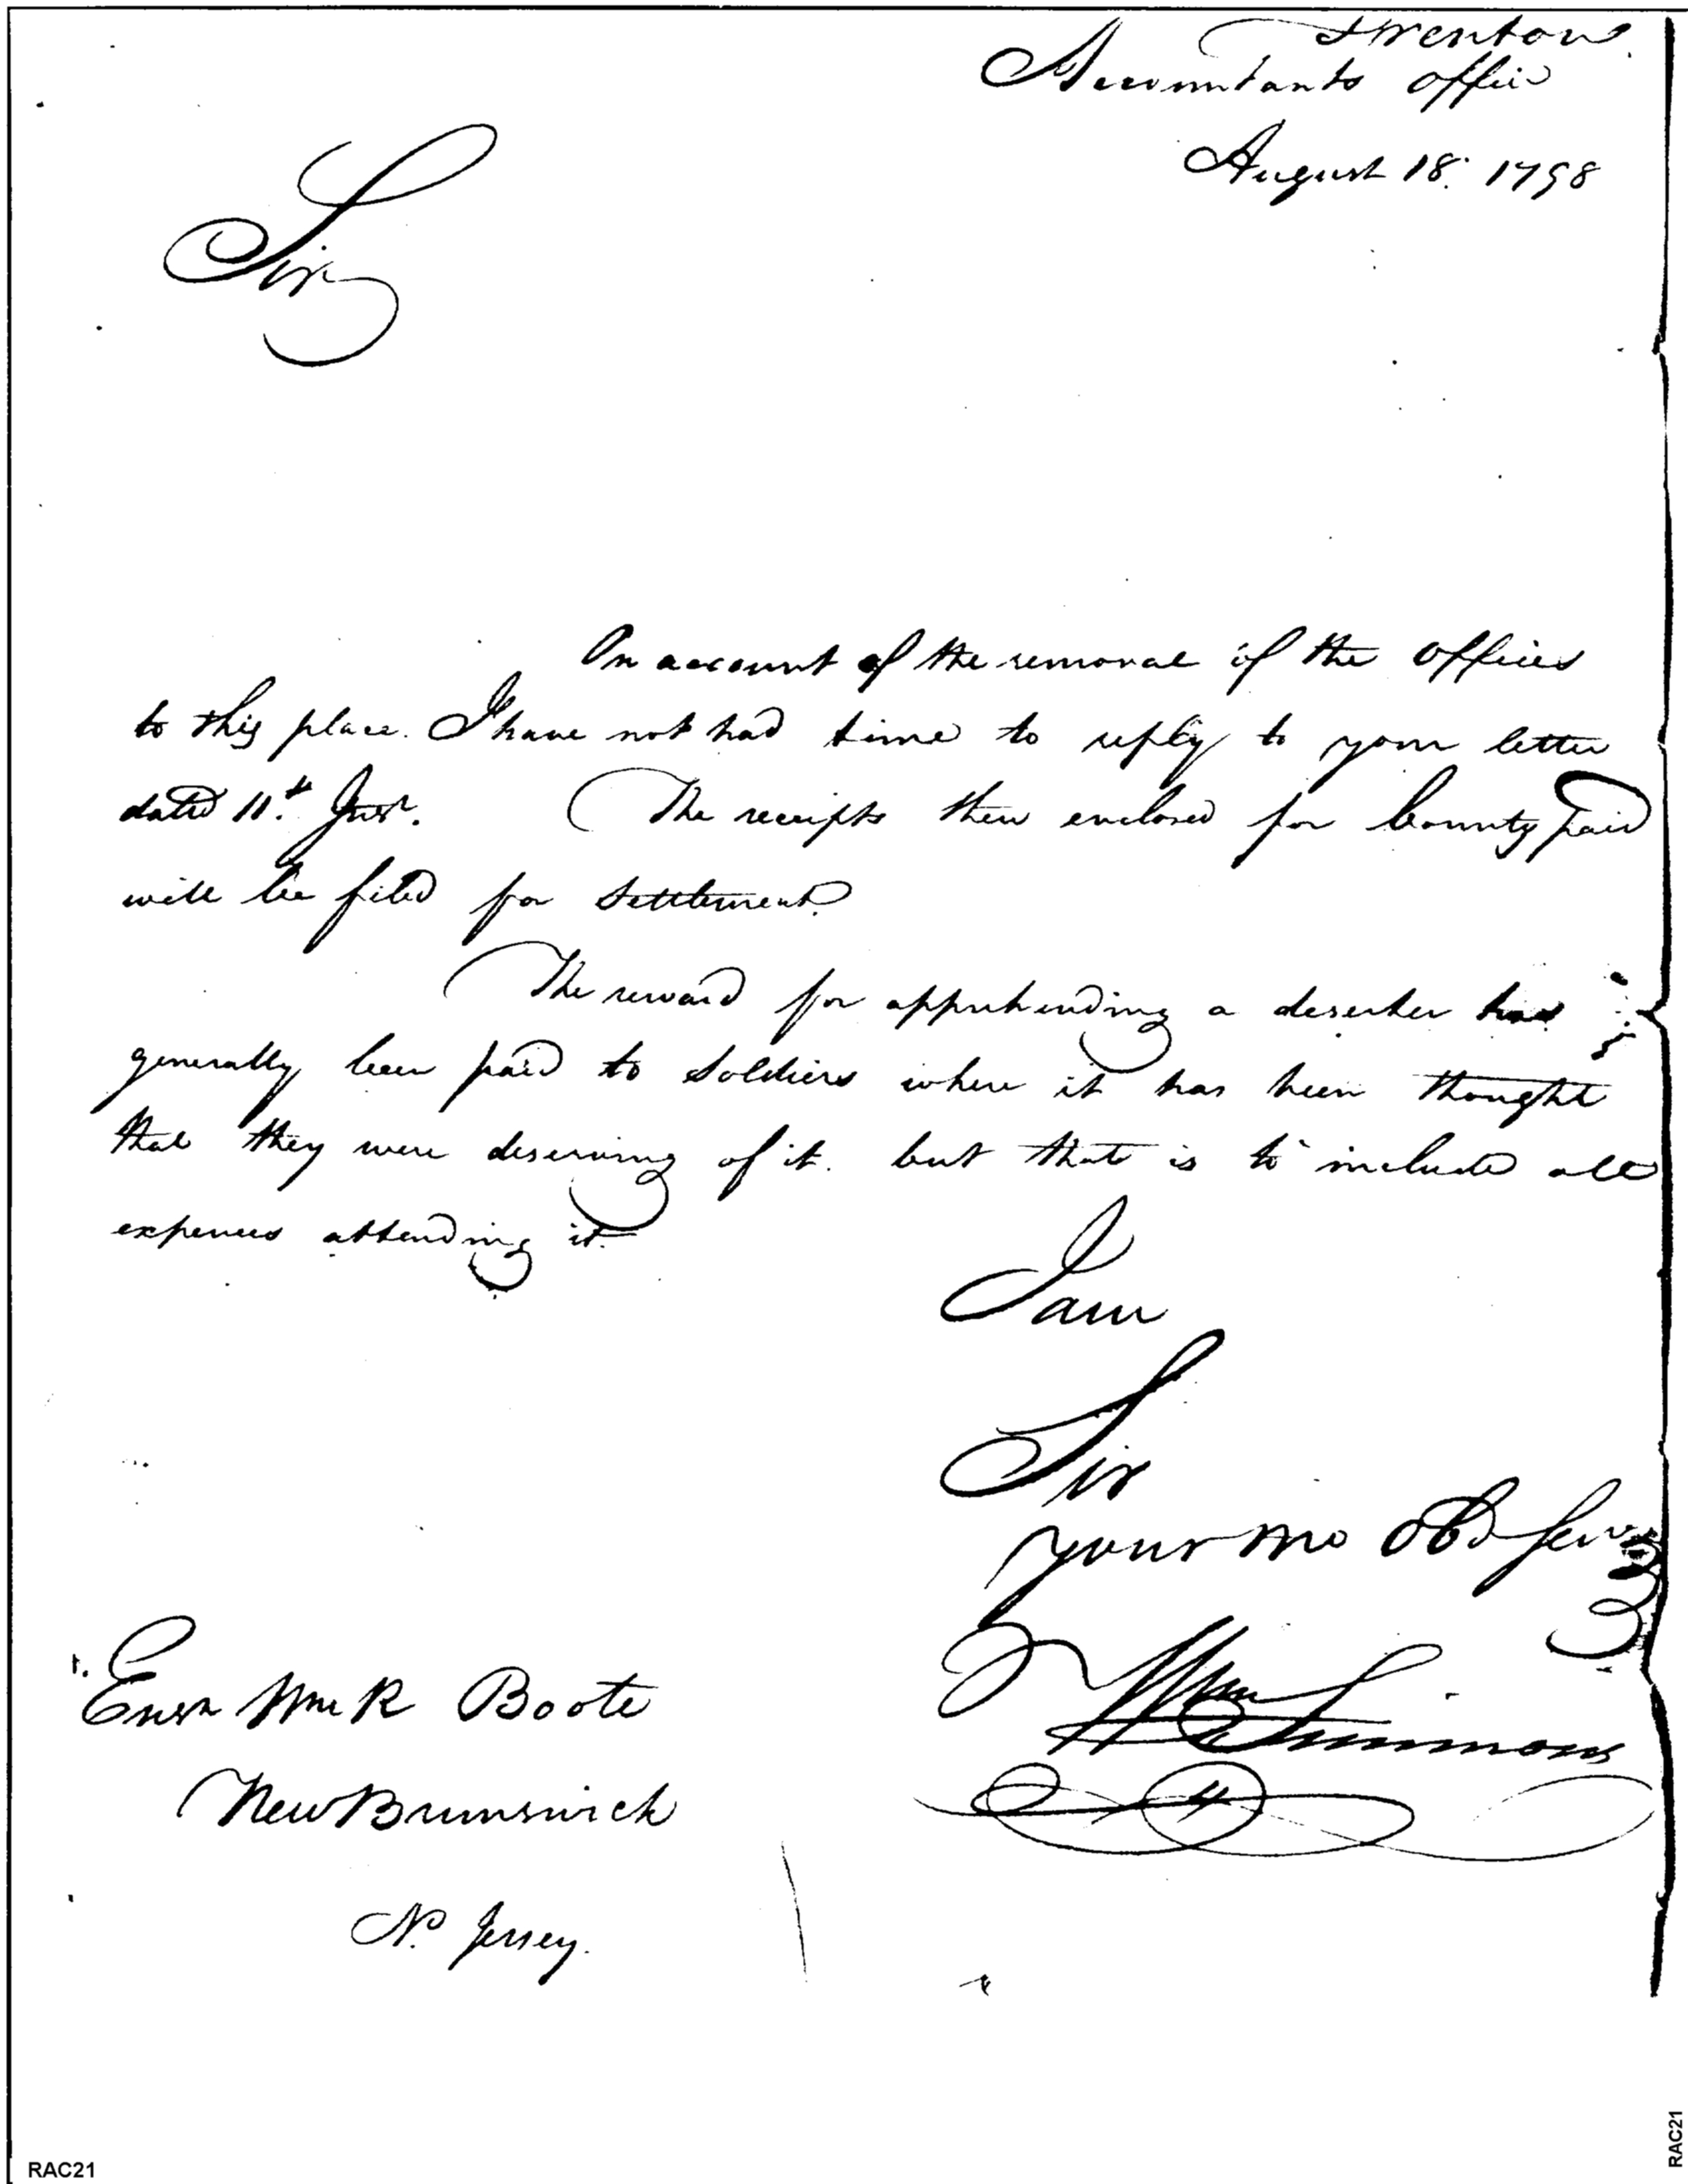 Trenton
Accountants Office
August 18. 1798
Sir
On account of the removal of the Offices
to this place. I have not had time to reply to your letter
dated 11th Inst. The receipts then enclosed for bounty paid
will be filed for settlement.
The reward for apprehending a deserter has
generally been paid to Soldiers where it has been thought
that they were deserving of it. but that is to include all
expences attending it.
I am
Sir
your mo Obd Serv
Wm Simmons
Ensn Wm R Boote
New Brunswick
No Jersey.
RAC21
RAC21